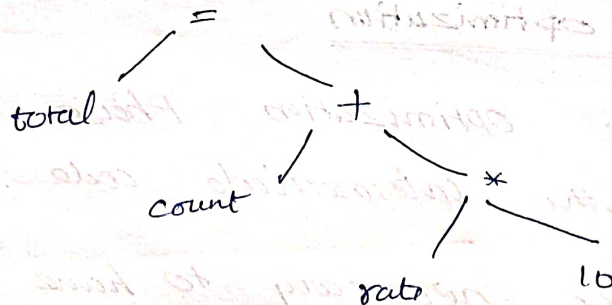 =
total
+
count
*
rate
10